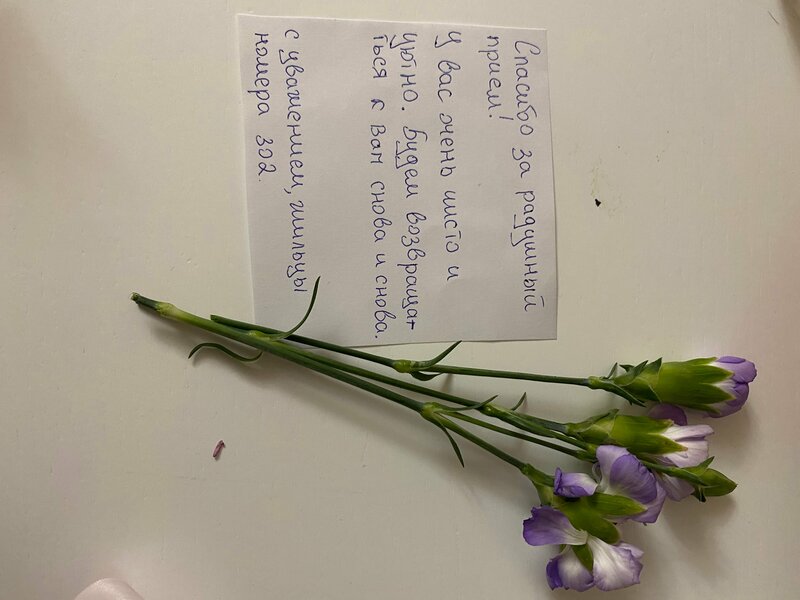 Спасибо за радушный
прием!
У вас очень чисто и
уютно. Будем возвращат
ться к вам снова и снова.
с уважением, жильцы
номера 302.